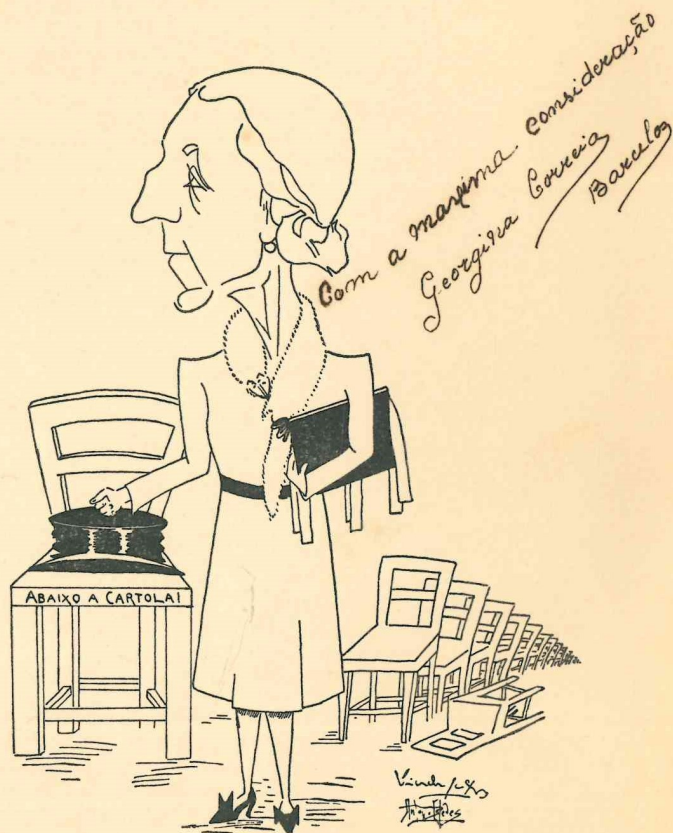 Com a maxima consideração
Georgina Correia
Barcelos
ABAIXO A CARTOLA!